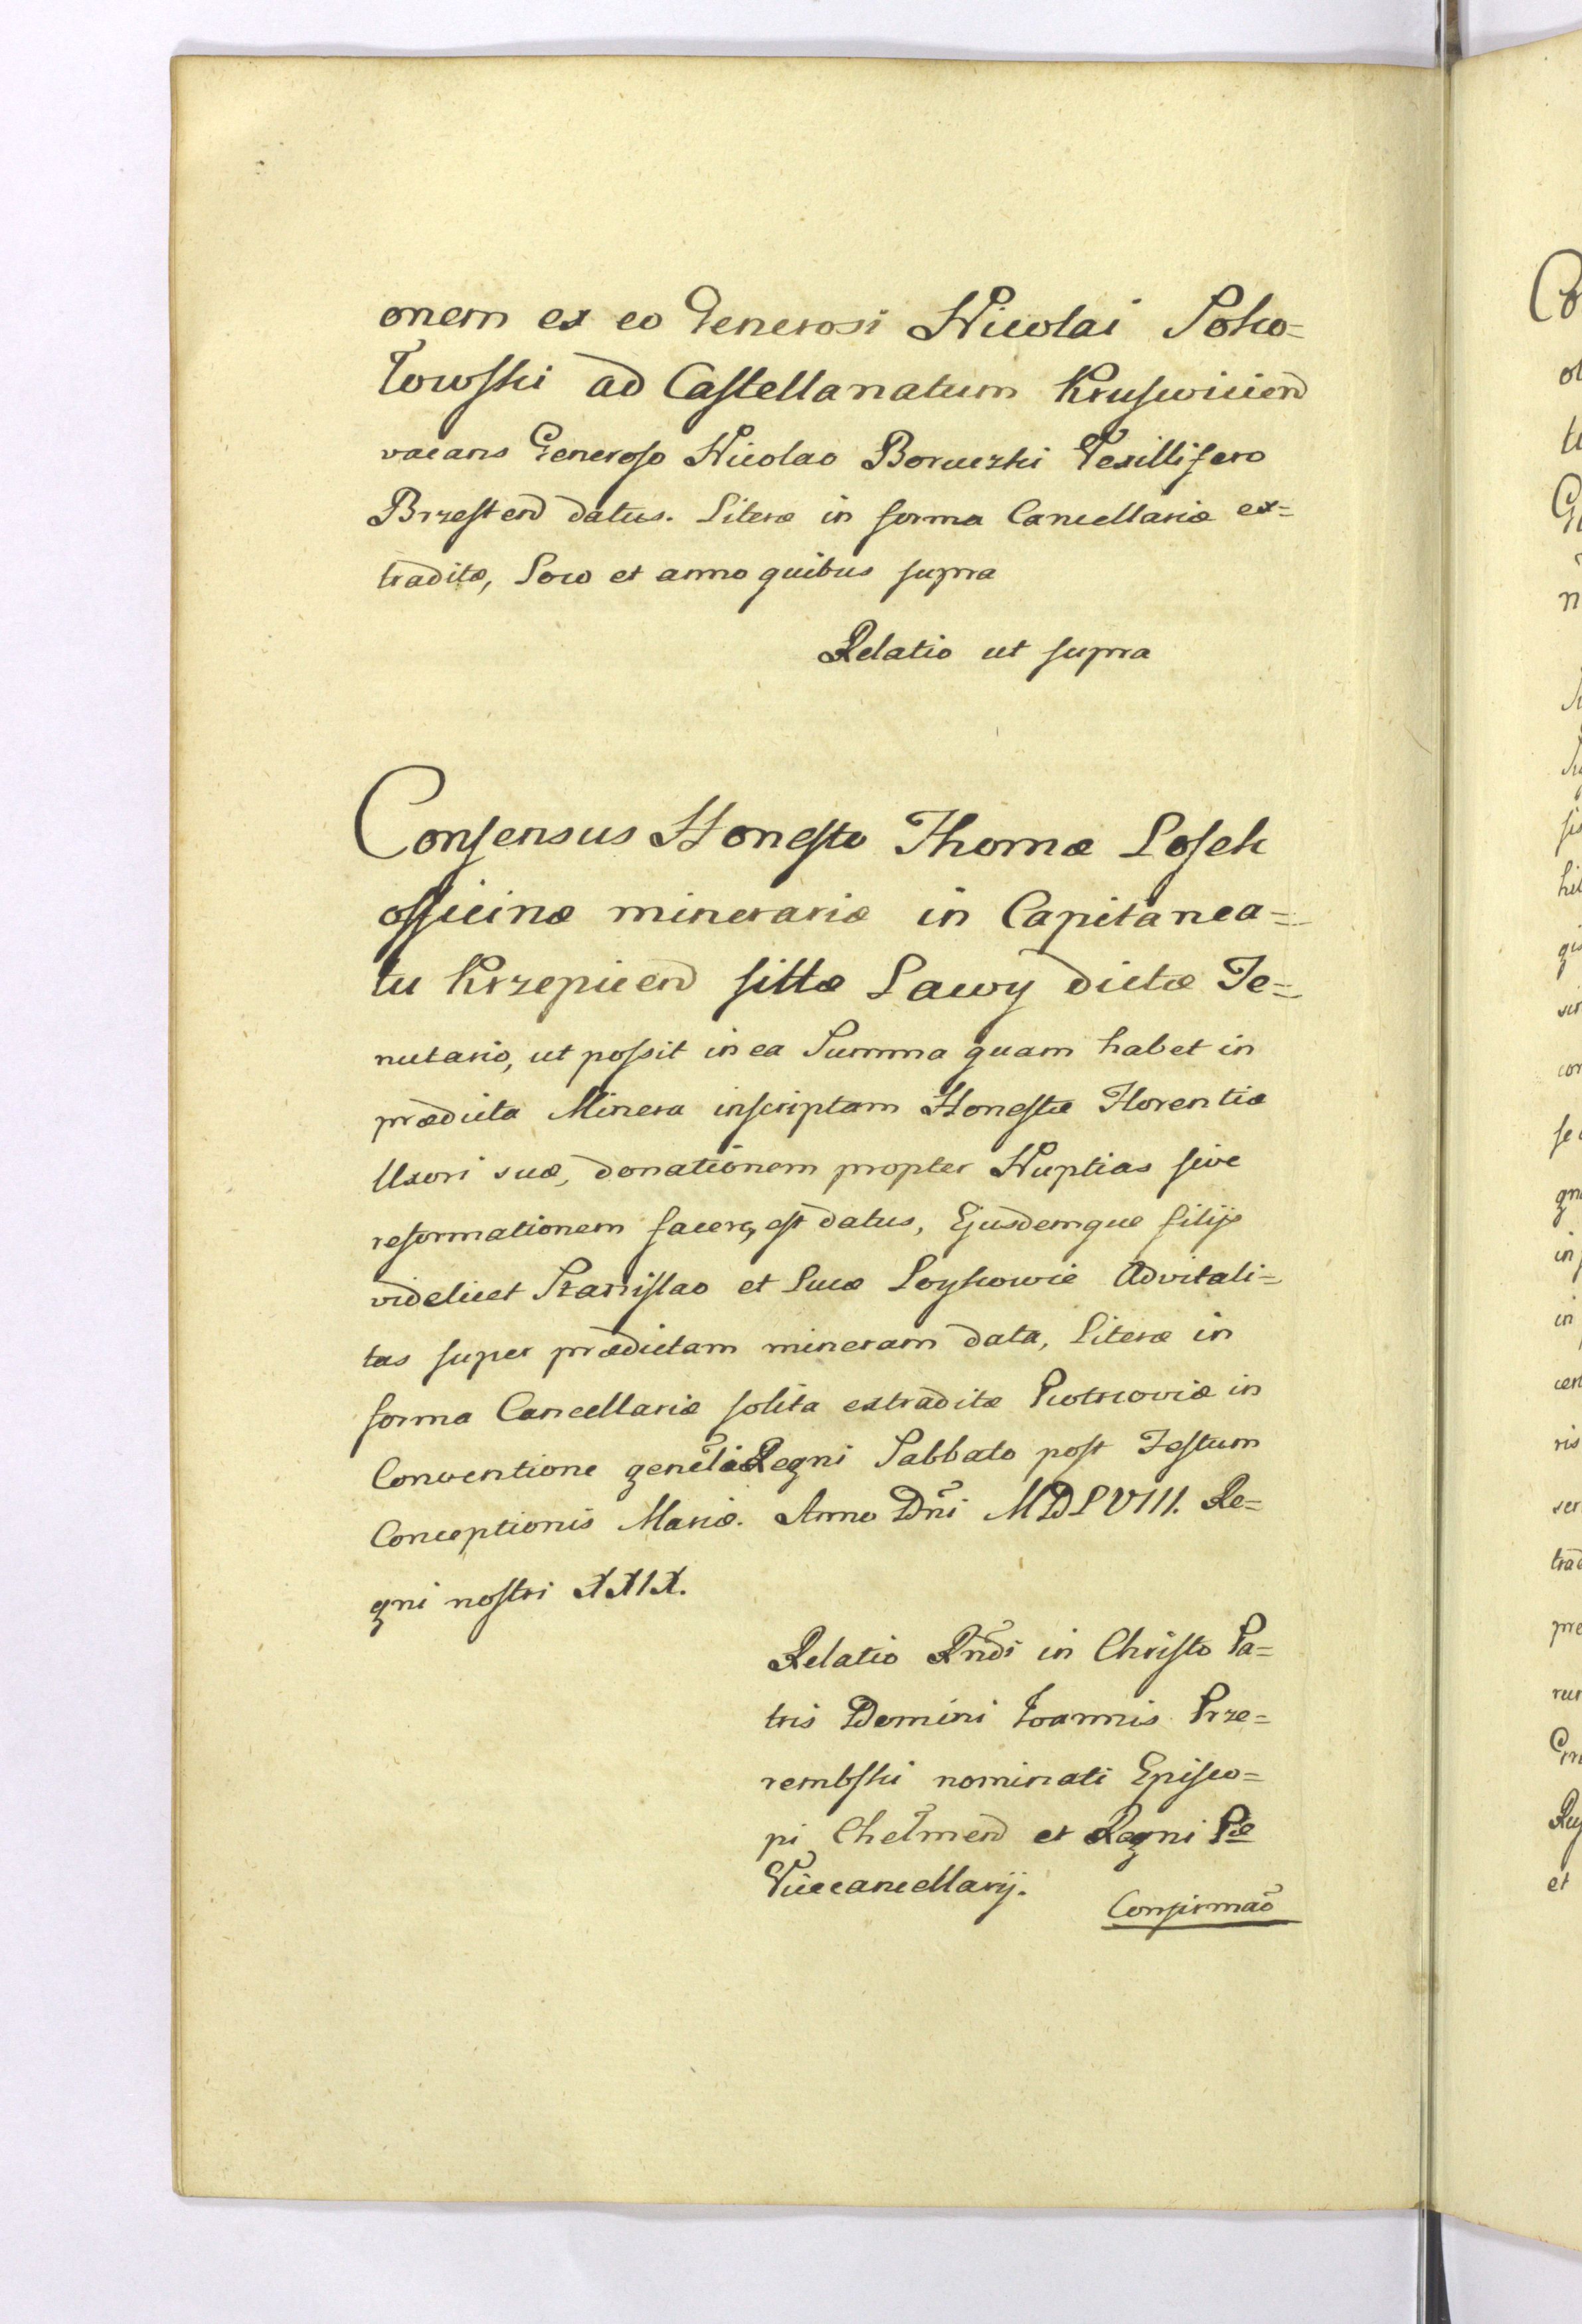 onem ex eo Generosi Nicolai Soko=
łowski ad Castellanatum Kruswicień
vacans Generoso Nicolao Boruczki Vexillifero
Brzesteñ datus. Literæ in forma Cancellariæ ex=
traditæ, Loco et anno quibus supra
Relatio ut supra
Consensus Honesto Thomæ Losek
officinæ minerariæ in Capitanea=
tu Krzepiceñ sittæ Lawy dictæ Te=
nutario, ut possit in ea Summa quam habet in
prædicta Minera inscriptam Honestæ Florentiæ
Uxori suæ, donationem propter Nuptias sive
reformationem facere, est datus, Ejusdemque filijs
videlicet Stanislao et Lucæ Loyskowie Advitali=
tas super prædictam mineram data, Literæ in
forma Cancellariæ solita extraditæ Piotrcoviæ in
Conventione gen̄eli Regni Sabbato post Festum
Conceptionis Mariæ. Anno Dn̄i MDLVIII. Re=
gni nostri XXIX.
Relatio Rn̄di in Christo Pa=
tris Domini Joannis Prze=
rembski nominati Episco=
pi Chełmeñ et Regni Pæ
Vicecancellarij.
Confirmaõ